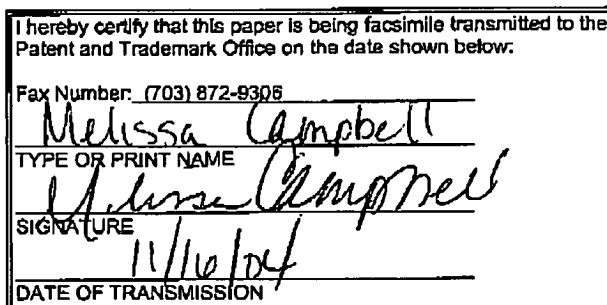 I hereby certify that this paper is being facsimile transmitted to the
Patent and Trademark Office on the date shown below:
Fax Number: (703) 872-9306
Melissa Campbell
TYPE OR PRINT NAME
Melissa Campbell
SIGNATURE
11/16/04
DATE OF TRANSMISSION